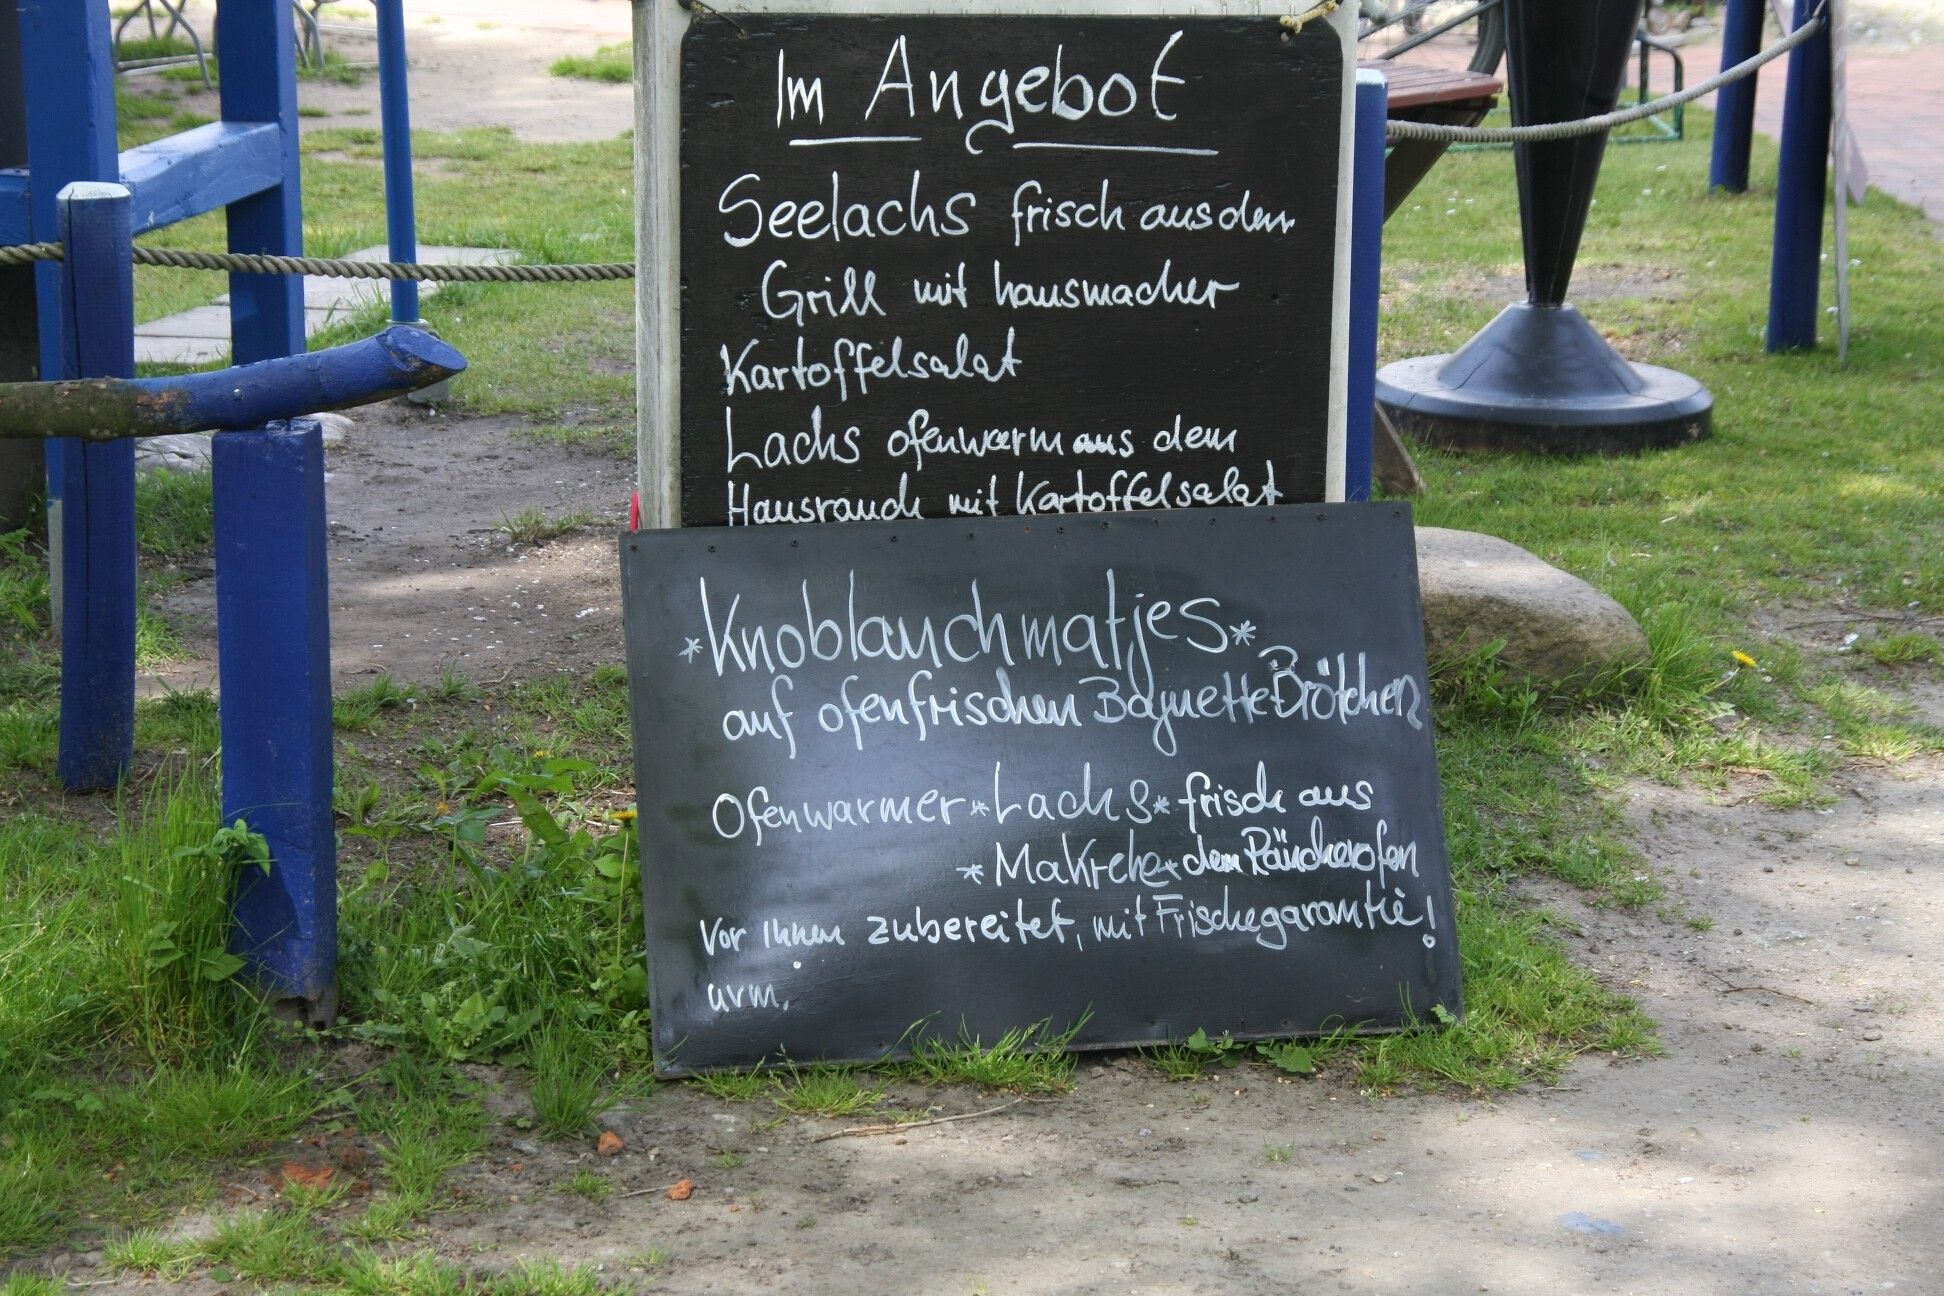 Im Angebot
Seelachs frisch aus dem
Grill mit hausmacher
Kartoffelsalat
Lachs ofenwarm aus dem
Hausrauch mit Kartoffelsalat
*Knoblauchmatjes*
auf ofenfrischen Baguette Brötchen
Ofenwarmer *Lachs* frisch aus
*Makrele* dem Räucherofen
Vor Ihnen zubereitet, mit Frischegarantie!